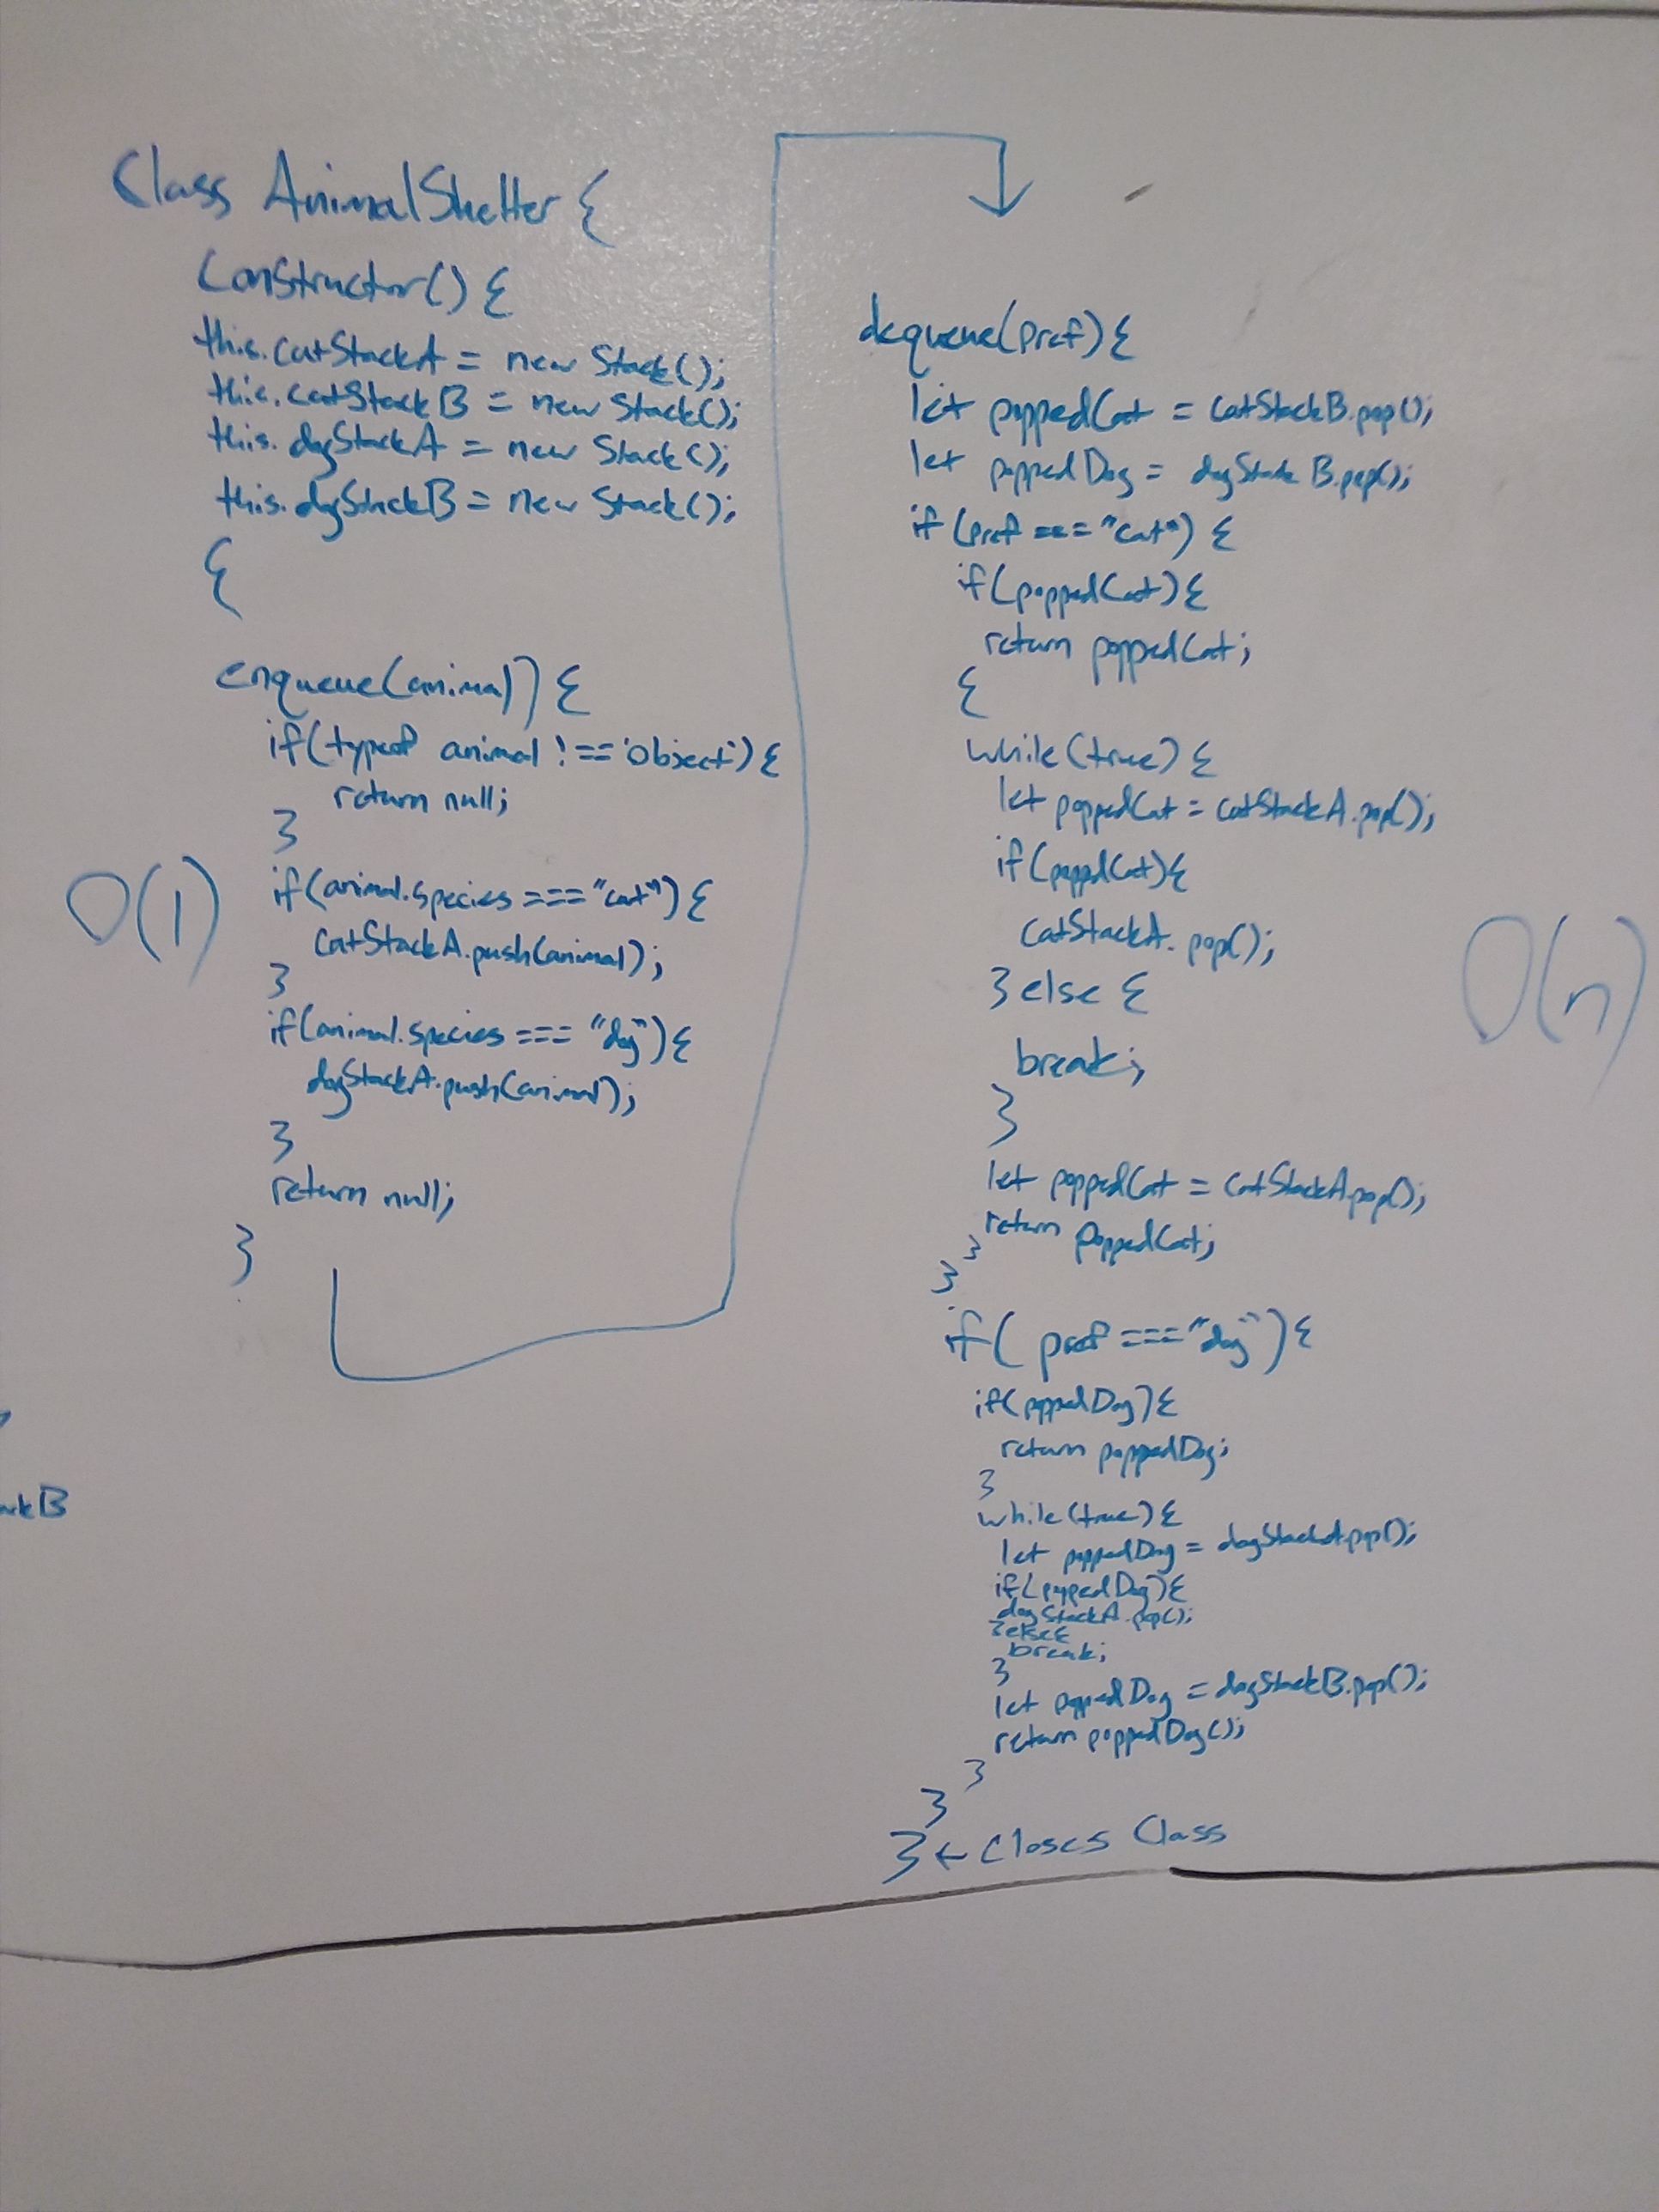 Class AnimalShelter {
Constructor() {
this.catStackA = new Stack();
this.catStackB = new Stack();
this.dogStackA = new Stack();
this.dogStackB = new Stack();
{
enqueue(animal) {
if(typeof animal !== 'object'){
return null;
}
if(animal.species === "cat") {
catStackA.push(animal);
}
if(animal.species === "dog"){
dogStackA.push(animal);
}
return null;
}
O(1)
dequeue(pref) {
let poppedCat = catStackB.pop();
let poppedDog = dogStackB.pop();
if (pref === "cat") {
if(poppedCat) {
return poppedCat;
{
while(true) {
let poppedCat = catStackA.pop();
if(poppedCat){
catStackA.pop();
} else {
break;
}
let poppedCat = catStackA.pop();
return poppedCat;
}
}
if( pref === "dog") {
if(poppedDog){
return poppedDog;
}
while(true) {
let poppedDog = dogStackA.pop();
if(poppedDog){
dogStackA.pop();
}else{
break;
}
let poppedDog = dogStackB.pop();
return poppedDog();
}
}
} ← Closes Class
O(n)